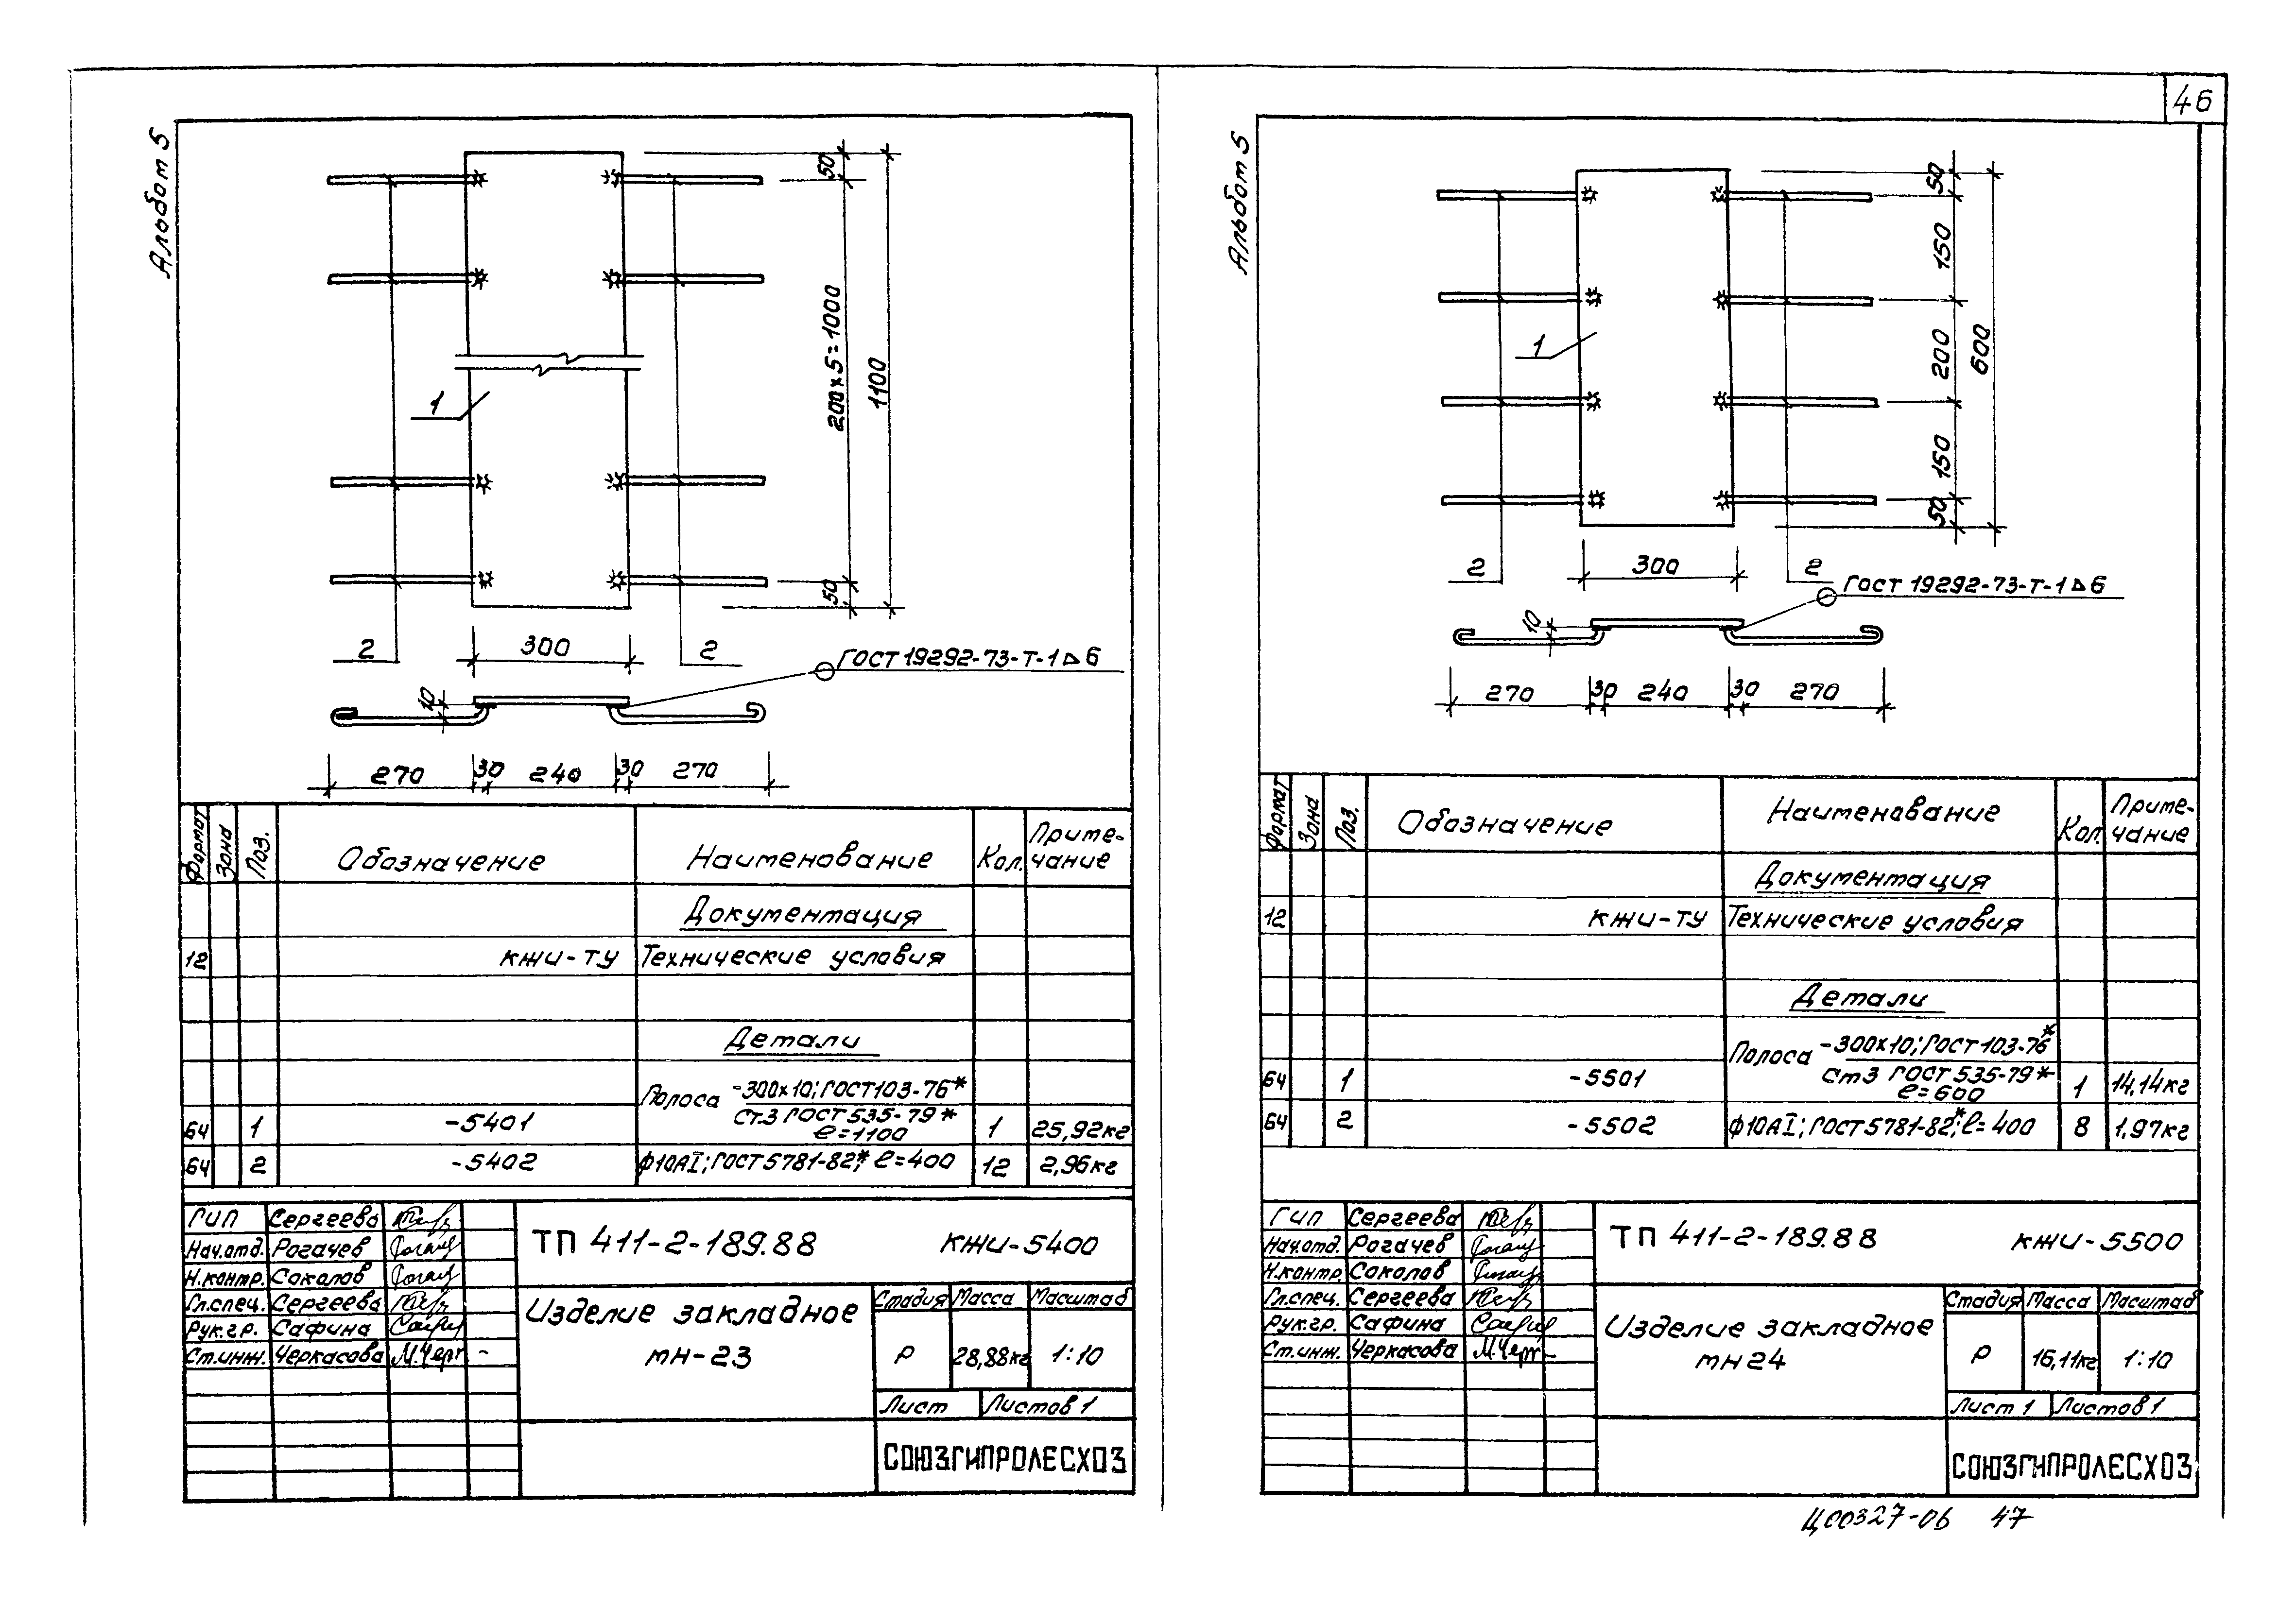 46
Альбом 5
50
200х5=1000
1100
50
1
2
300
2
ГОСТ 19292-73-Т-1⊿6
10
270
30
240
30
270
Формат
Зона
Поз.
Обозначение
Наименование
Кол.
Приме-
чание
Документация
12
КЖИ-ТУ
Технические условия
Детали
Полоса
-300х10; ГОСТ 103-76*
Ст.3 ГОСТ 535-79*
ℓ=1100
БЧ
1
-5401
1
25,92кг
БЧ
2
-5402
ф10АI; ГОСТ 5781-82*, ℓ=400
12
2,96кг
ГИП Сергеева
Нач.отд. Рогачев
Н.контр. Соколов
Гл.спец. Сергеева
Рук.гр. Сафина
Ст.инж. Черкасова
ТП 411-2-189.88
КЖИ-5400
Изделие закладное
МН-23
Стадия
Масса
Масштаб
Р
28,88кг
1:10
Лист
Листов 1
СОЮЗГИПРОЛЕСХОЗ
Альбом 5
50
150
200
150
50
600
1
2
300
2
ГОСТ 19292-73-Т-1⊿6
10
270
30
240
30
270
Формат
Зона
Поз.
Обозначение
Наименование
Кол.
Приме-
чание
Документация
12
КЖИ-ТУ
Технические условия
Детали
Полоса
-300х10; ГОСТ 103-76*
Ст3 ГОСТ 535-79*
ℓ=600
БЧ
1
-5501
1
14,14кг
БЧ
2
-5502
ф10АI; ГОСТ 5781-82*; ℓ=400
8
1,97кг
ГИП Сергеева
Нач.отд. Рогачев
Н.контр. Соколов
Гл.спец. Сергеева
Рук.гр. Сафина
Ст.инж. Черкасова
ТП 411-2-189.88
КЖИ-5500
Изделие закладное
МН24
Стадия
Масса
Масштаб
Р
16,11кг
1:10
Лист 1
Листов 1
СОЮЗГИПРОЛЕСХОЗ
ЦС0327-06 47